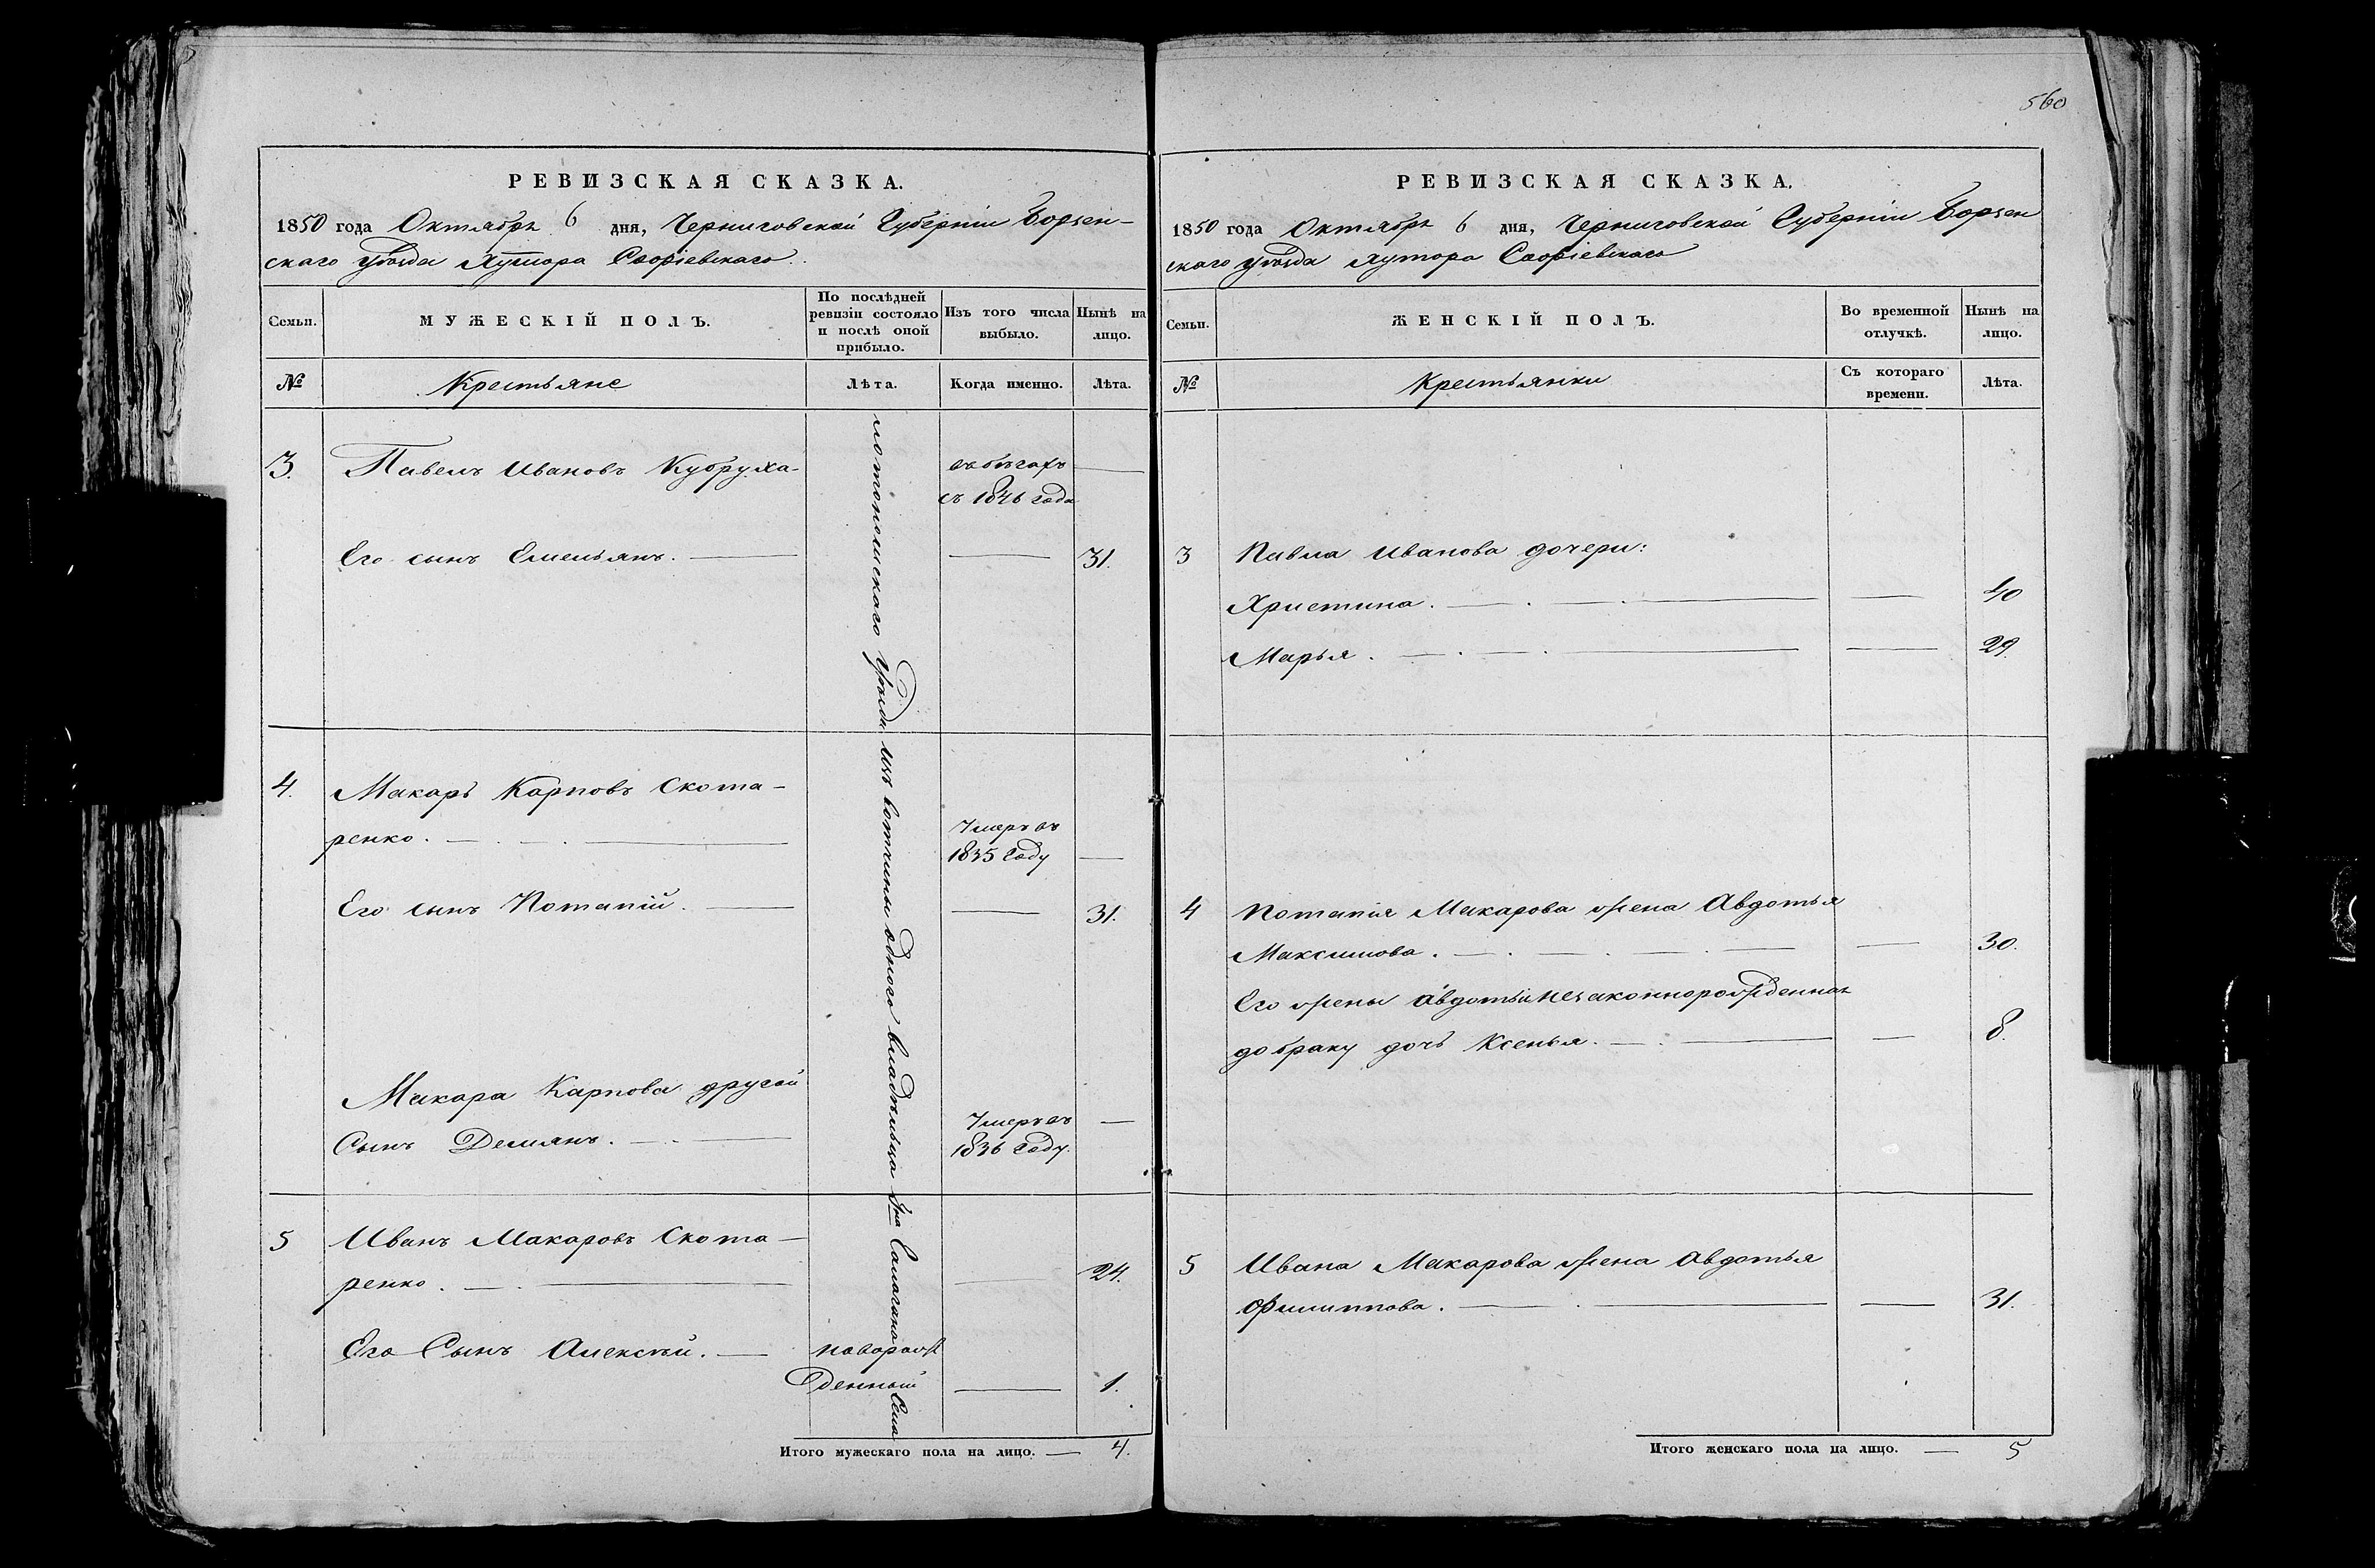 560
РЕВИЗСКАЯ СКАЗКА.
1850 года Октября 6 дня, Черниговской Губерніи Борзен-
скаго уѣзда Хутора Софіевскаго.
Семьи.
МУЖЕСКІЙ ПОЛЪ.
По послѣдней ревизіи состояло и послѣ оной прибыло.
Изъ того числа выбыло.
Нынѣ на лицо.
№
Крестьяне
Лѣта.
Когда именно.
Лѣта.
3. Павелъ Ивановъ Кубруха-
въ бѣгахъ
съ 1846 года
Его сынъ Емельянъ. 31.
4. Макаръ Карповъ Скота-
ренко.
Умеръ въ
1835 Году
Его сынъ Потапій. 31.
Макара Карпова другой
Сынъ Демянъ.
Умеръ въ
1836 Году.
5 Иванъ Макаровъ Скота-
ренко. 24.
Его Сынъ Алексѣй. новорож
денный 1.
уѣзда изъ вотчины одного владѣльца
Итого мужескаго пола на лицо. — 4.
РЕВИЗСКАЯ СКАЗКА.
1850 года Октября 6 дня, Черниговской Губерніи Борзен
скаго уѣзда хутора Софіевскаго
Семьи.
ЖЕНСКІЙ ПОЛЪ.
Во временной отлучкѣ.
Нынѣ на лицо.
№
Крестьянки
Съ котораго времени.
Лѣта.
3 Павла Иванова дочери:
Христина. 40
Марья. 29.
4 Потапія Макарова жена Авдотья
Максимова. 30.
Его жены Авдотьи незаконнорожденная
до браку дочь Ксенья. 8.
5 Ивана Макарова жена Авдотья
Филиппова. 31.
Итого женскаго пола на лицо. — 5